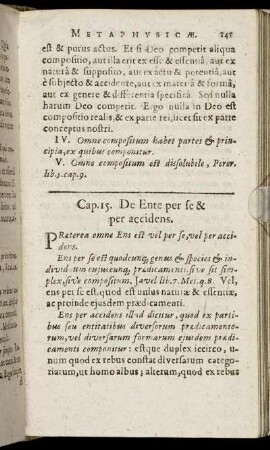 METAPHYSICÆ. 141
est & purus actus. Et si Deo competit aliqua
compositio, aut illa erit ex esse & essentiâ, aut ex
naturâ & supposito, aut ex actu & potentiâ, aut
è subjecto & accidente, aut ex materiâ & formâ,
aut ex genere & differentia specificâ. Sed nulla
harum Deo competit. Ergo nulla in Deo est
compositio realis, & ex parte rei, licet sit ex parte
conceptus nostri.
IV. Omne compositum habet partes & prin-
cipia, ex quibus componitur.
V. Omne compositum est dissolubile, Perer.
lib.5.cap.9.
Cap. 15. De Ente per se &
per accidens.
PRæterea omne Ens est vel per se, vel per acci-
dens.
Ens per se est quodcunq; genus & species & in-
dividuum cujuscunq; prædicamenti, sive sit sim-
plex, sive compositum, Javel lib.7. Met. q.8. Vel,
ens per se est, quod est unius naturæ & essentiæ,
ac proinde ejusdem prædicamenti.
Ens per accidens illud dicitur, quod ex parti-
bus seu entitatibus diversorum prædicamento-
rum, vel diversarum formarum ejusdem prædi-
camenti componitur: estque duplex iccirco, u-
num quod ex rebus constat diversarum catego-
riarum, ut homo albus; alterum, quod ex rebus